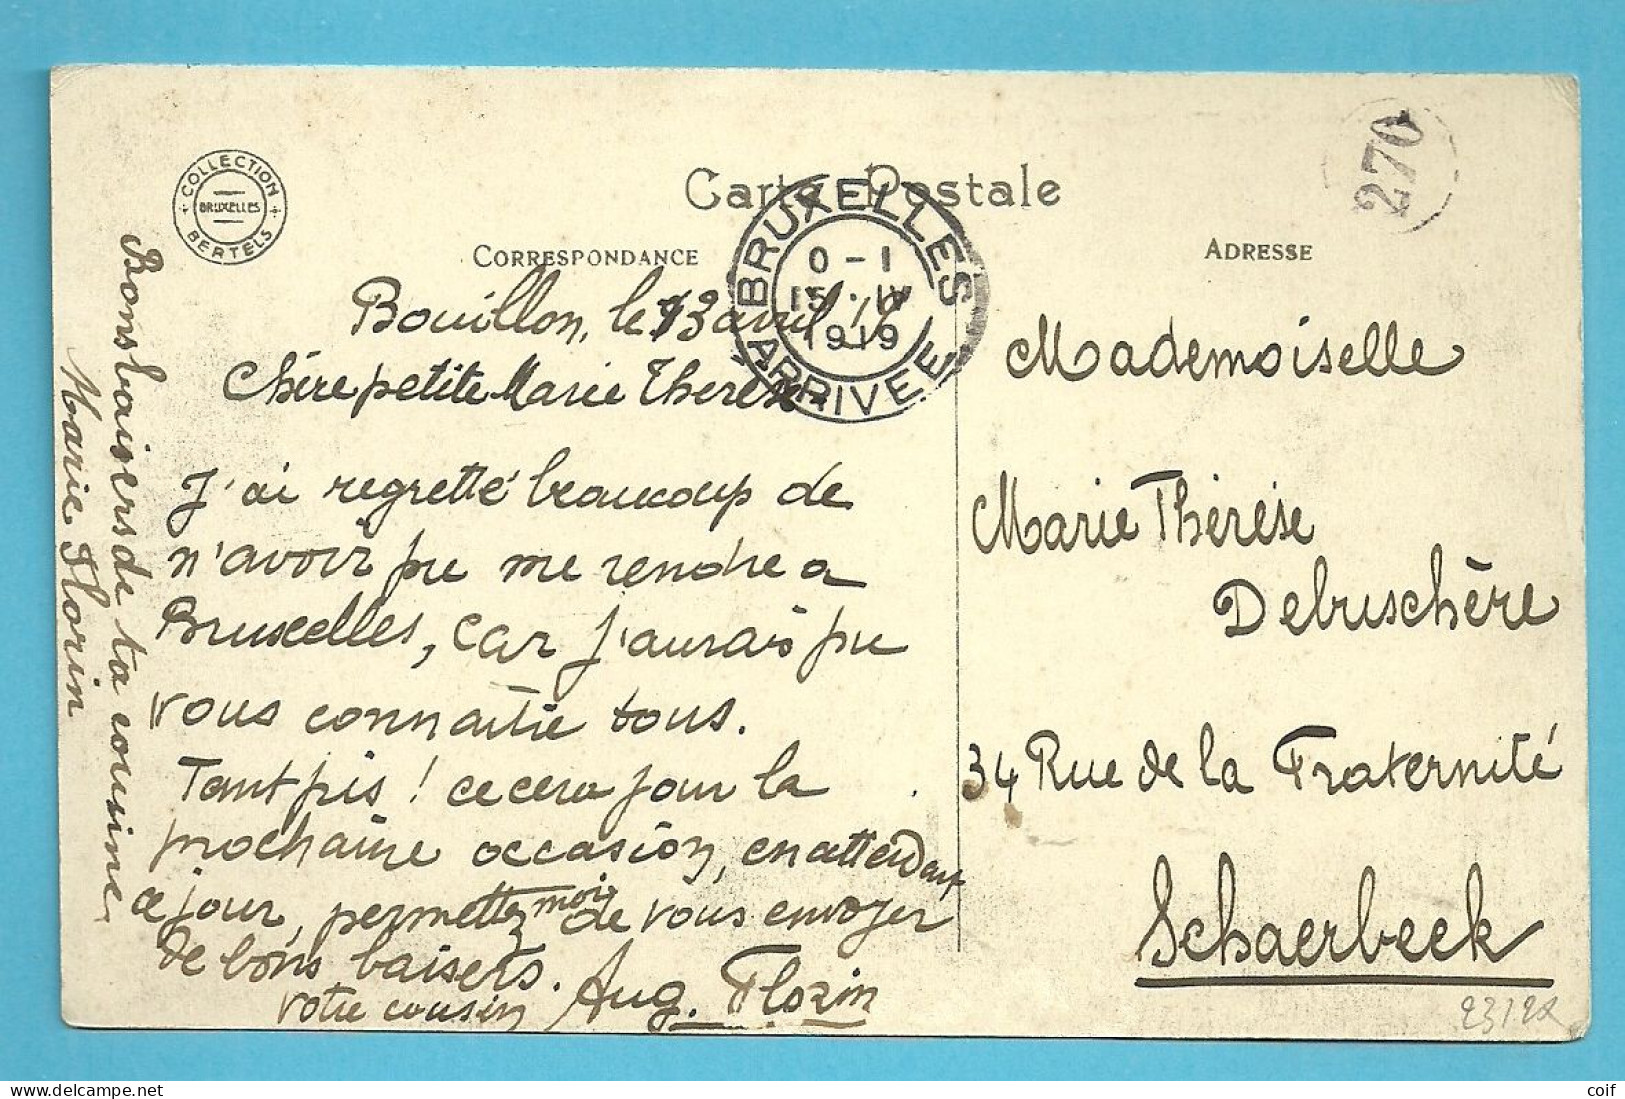 COLLECTION
BRUXELLES
BERTELS
Carte Postale
270
CORRESPONDANCE
ADRESSE
BRUXELLES
0 - 1
15 · IV
1919
ARRIVEE
Bouillon, le 13 avril 19
Chère petite Marie Therese
J'ai regretté beaucoup de
n'avoir pu me rendre a
Bruxelles, car j'aurais pu
vous connaitre tous.
Tant pis ! ce cera pour la
prochaine occasion, en attendant
ce jour, permettez moi de vous envoyer
de bons baisers.
votre cousin Aug. Florin
Bons baisers de ta cousine
Marie Florin
Mademoiselle
Marie Thérèse
Debruschère
34 Rue de la Fraternité
Schaerbeek
coif